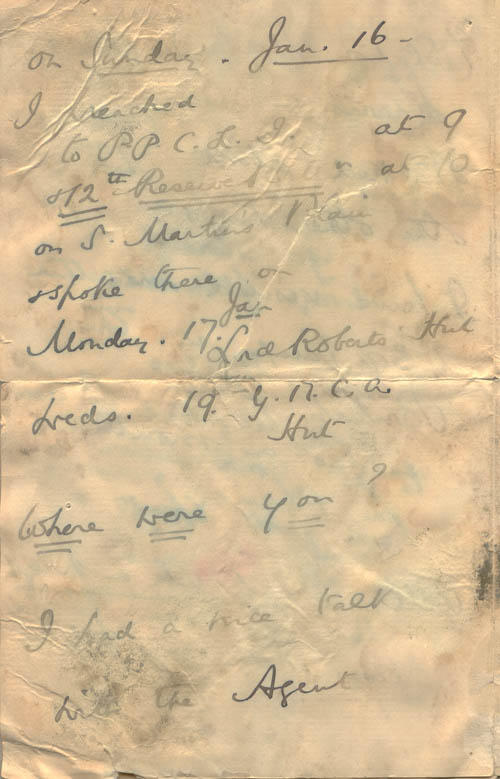 on Sunday. Jan. 16 -
I preached
to P P C. L. I. at 9
& 12th Reserve Battn at 10
on S. Martin's Plain
& spoke there on
Jan
Monday. 17. Lord Roberts Hut
Weds. 19. Y. M. C. A.
Hut
Where were you ?
I had a nice talk
with the Agent